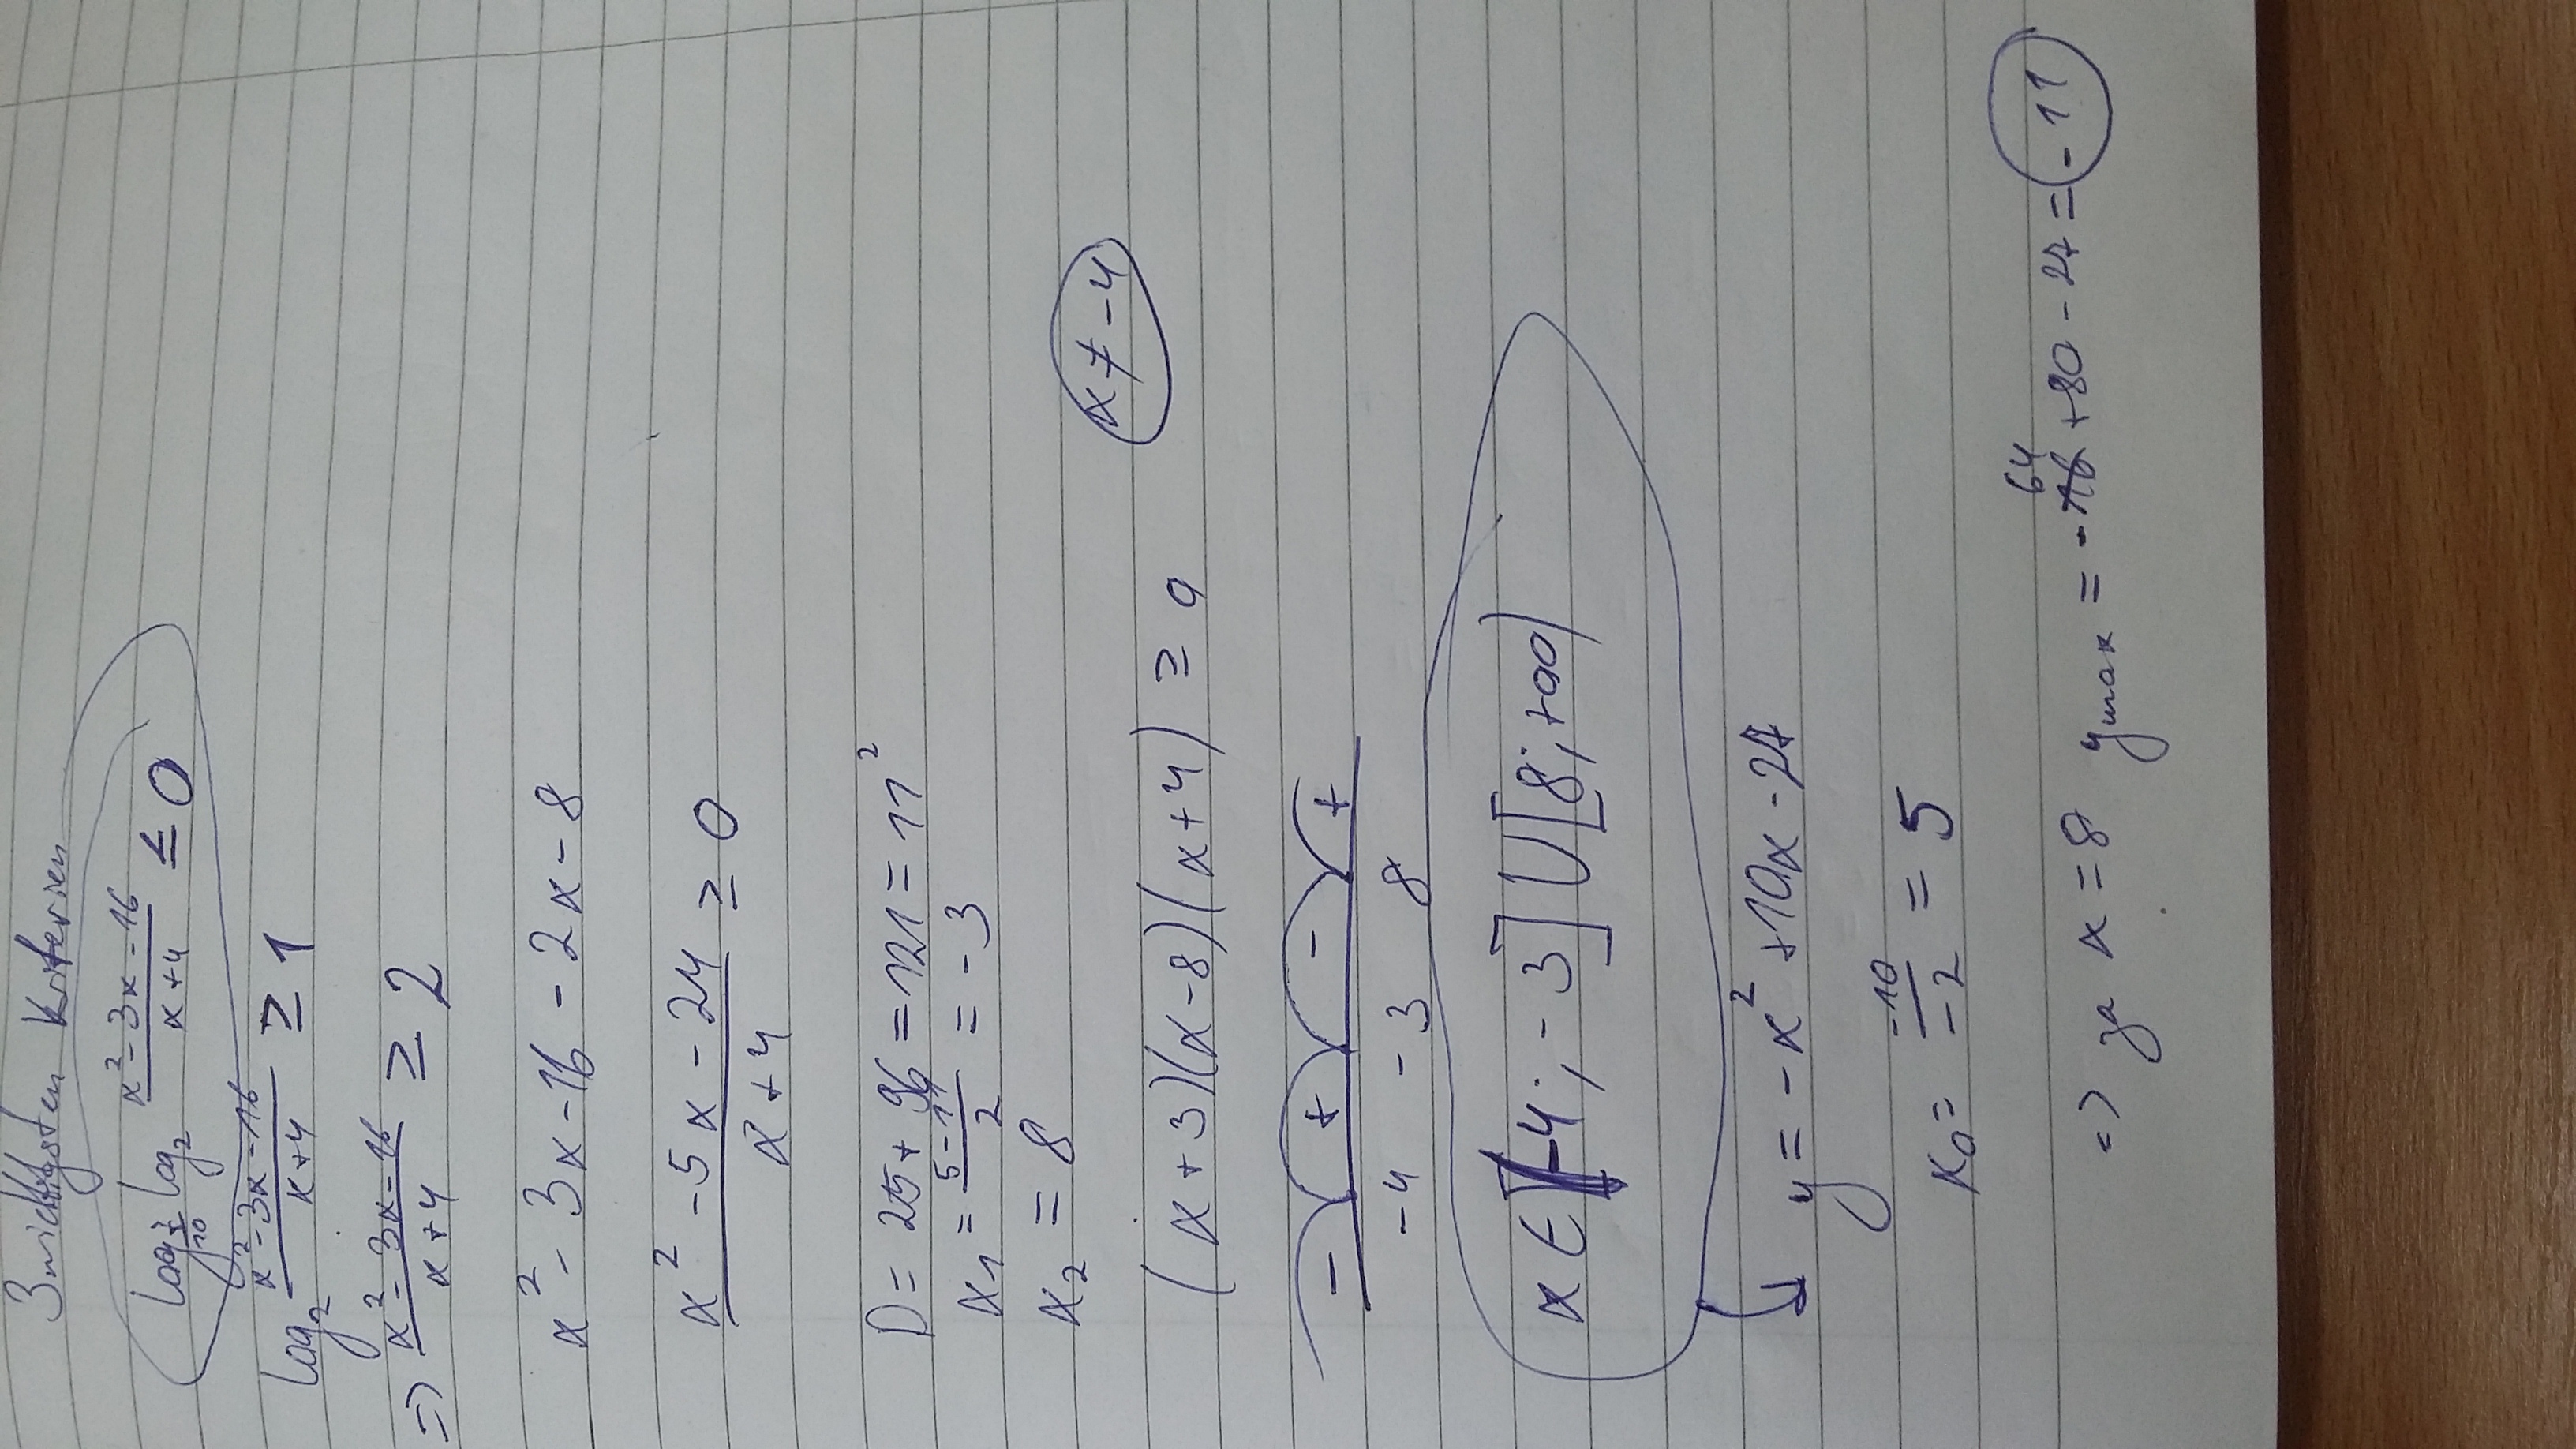 3 wichtigsten Kriterien
log_{1/10} log_2 (x² - 3x - 16)/(x + 4) ≤ 0
log_2 (x² - 3x - 16)/(x + 4) ≥ 1
=> (x² - 3x - 16)/(x + 4) ≥ 2
x² - 3x - 16 - 2x - 8
(x² - 5x - 24)/(x + 4) ≥ 0
D = 25 + 96 = 121 = 11²
x_1 = (5 - 11)/2 = -3
x_2 = 8
x ≠ -4
(x + 3)(x - 8)(x + 4) ≥ 0
- + - +
-4 -3 8
x ∈ (-4; -3] U [8; +∞)
y = -x² + 10x - 27
x_0 = -10/-2 = 5
=> за x = 8 y max = -64 + 80 - 27 = -11